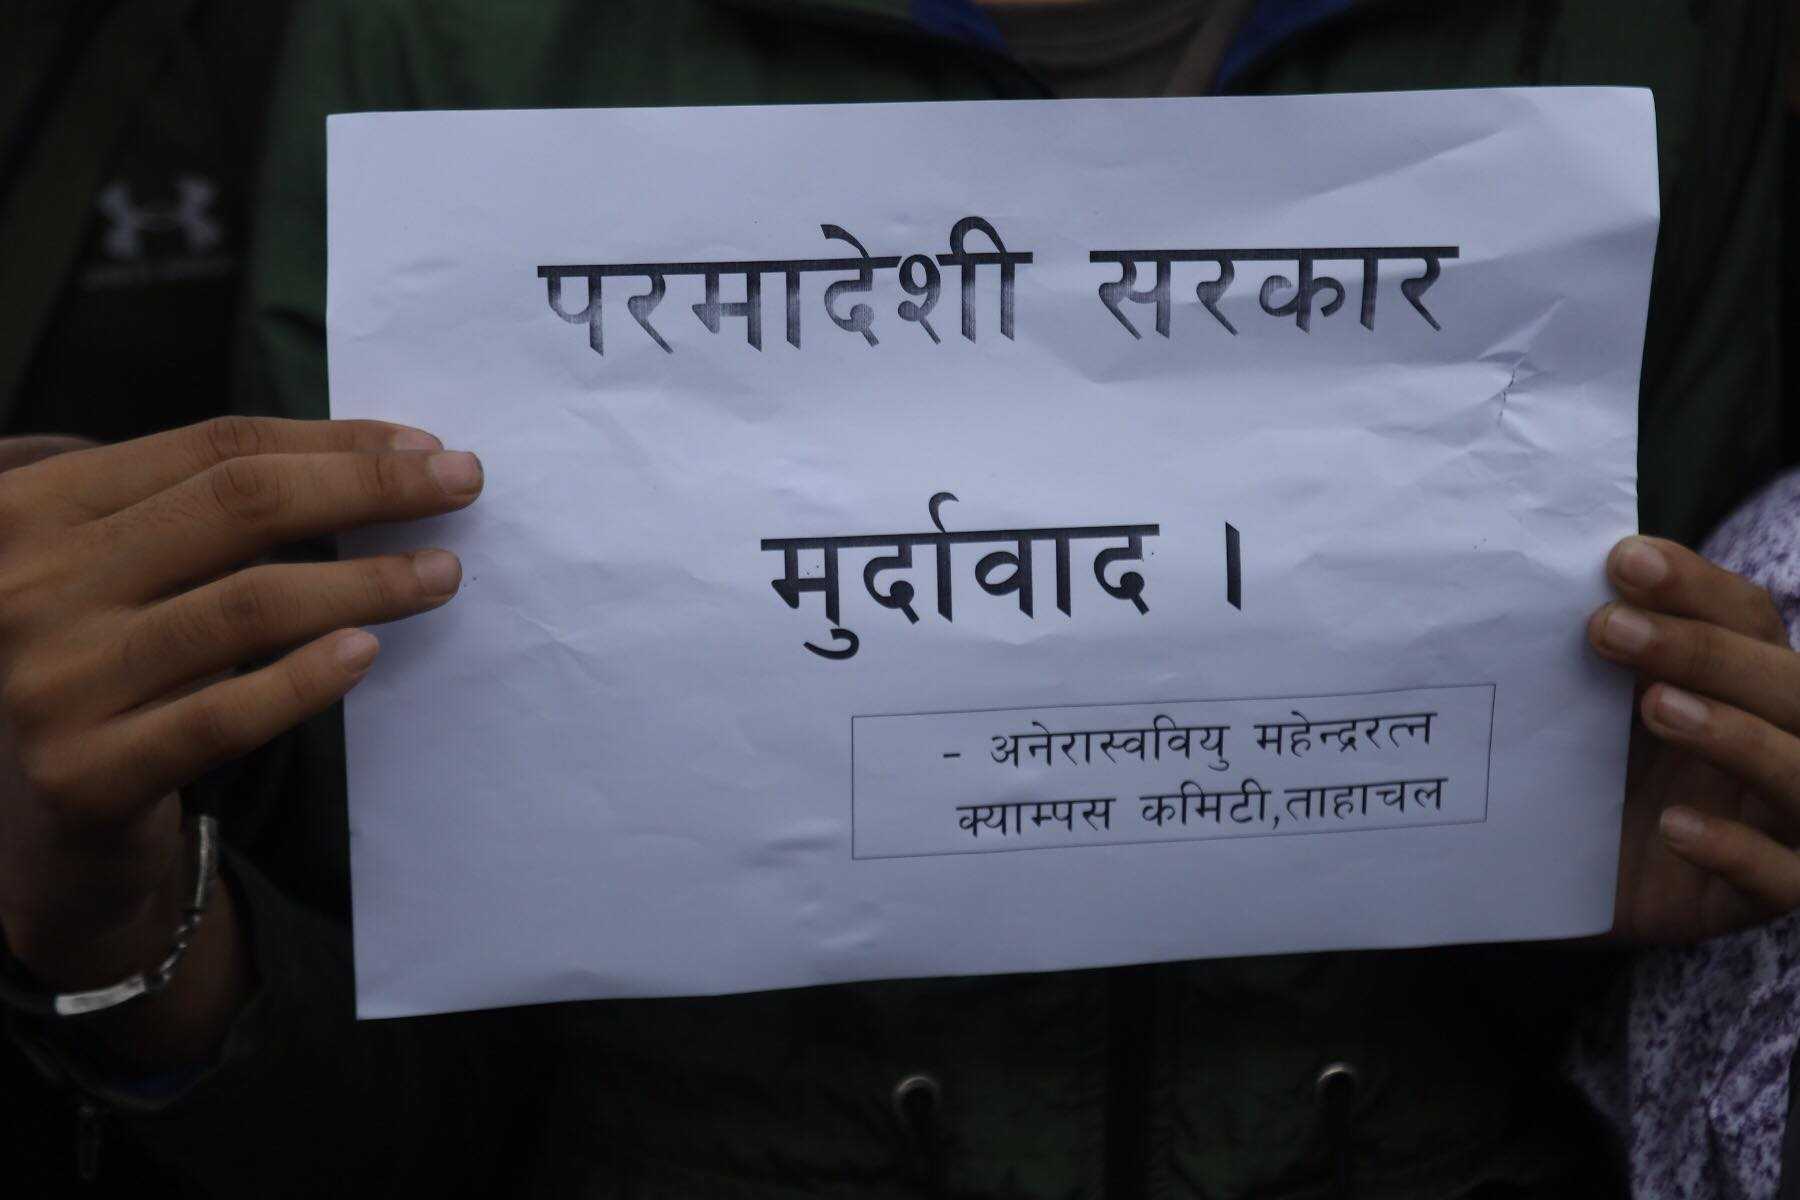 परमादेशी सरकार
मुर्दावाद ।
- अनेरास्ववियु महेन्द्ररत्न
क्याम्पस कमिटी,ताहाचल